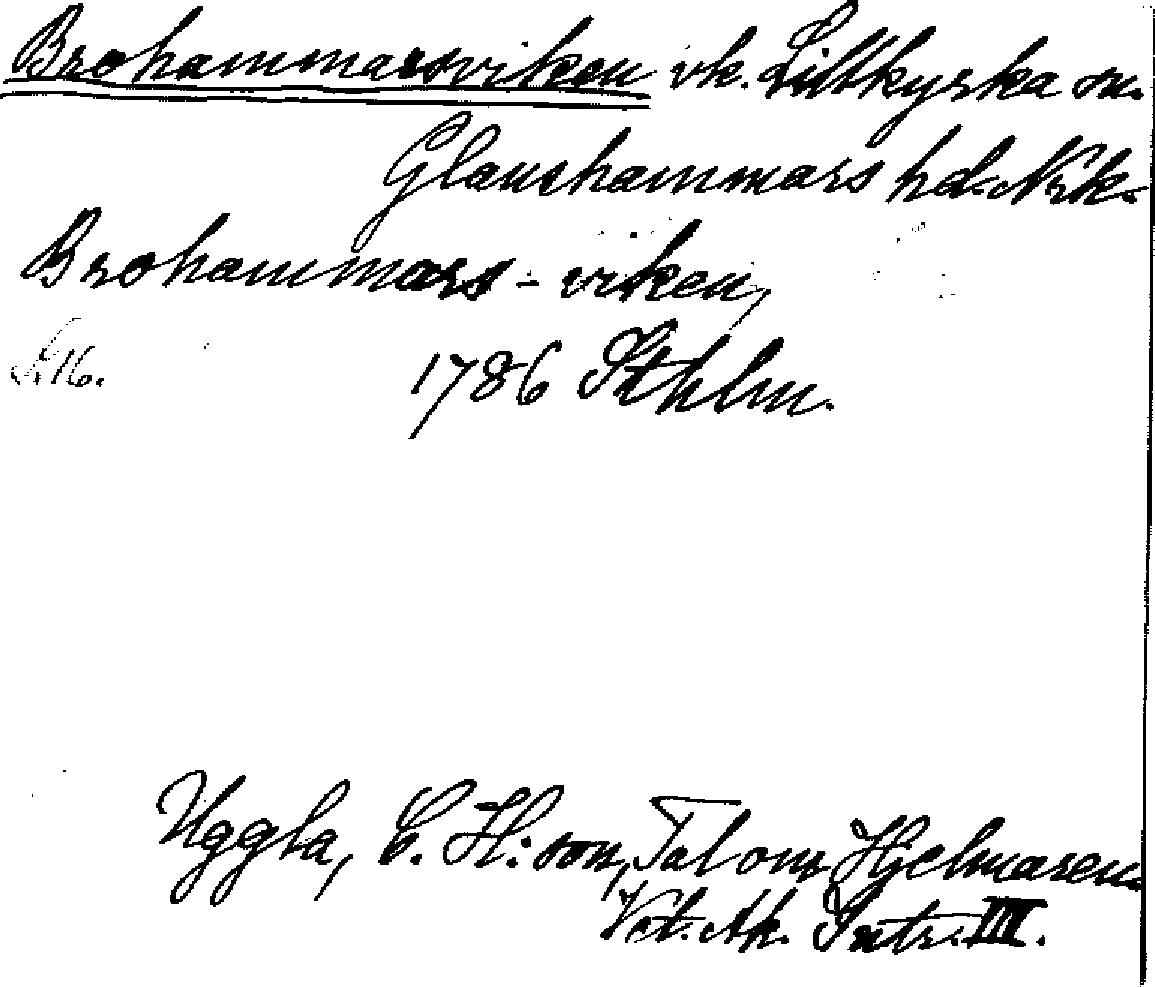 Brohammarsviken vk. Lillkyrka sn.
Glanshammars hd. Nrk.
Brohammars-viken,
S. 16. 1786 Sthlm.
Uggla, C. H:son, Tal om Hjelmaren.
Vet. Ak. Intr. III.